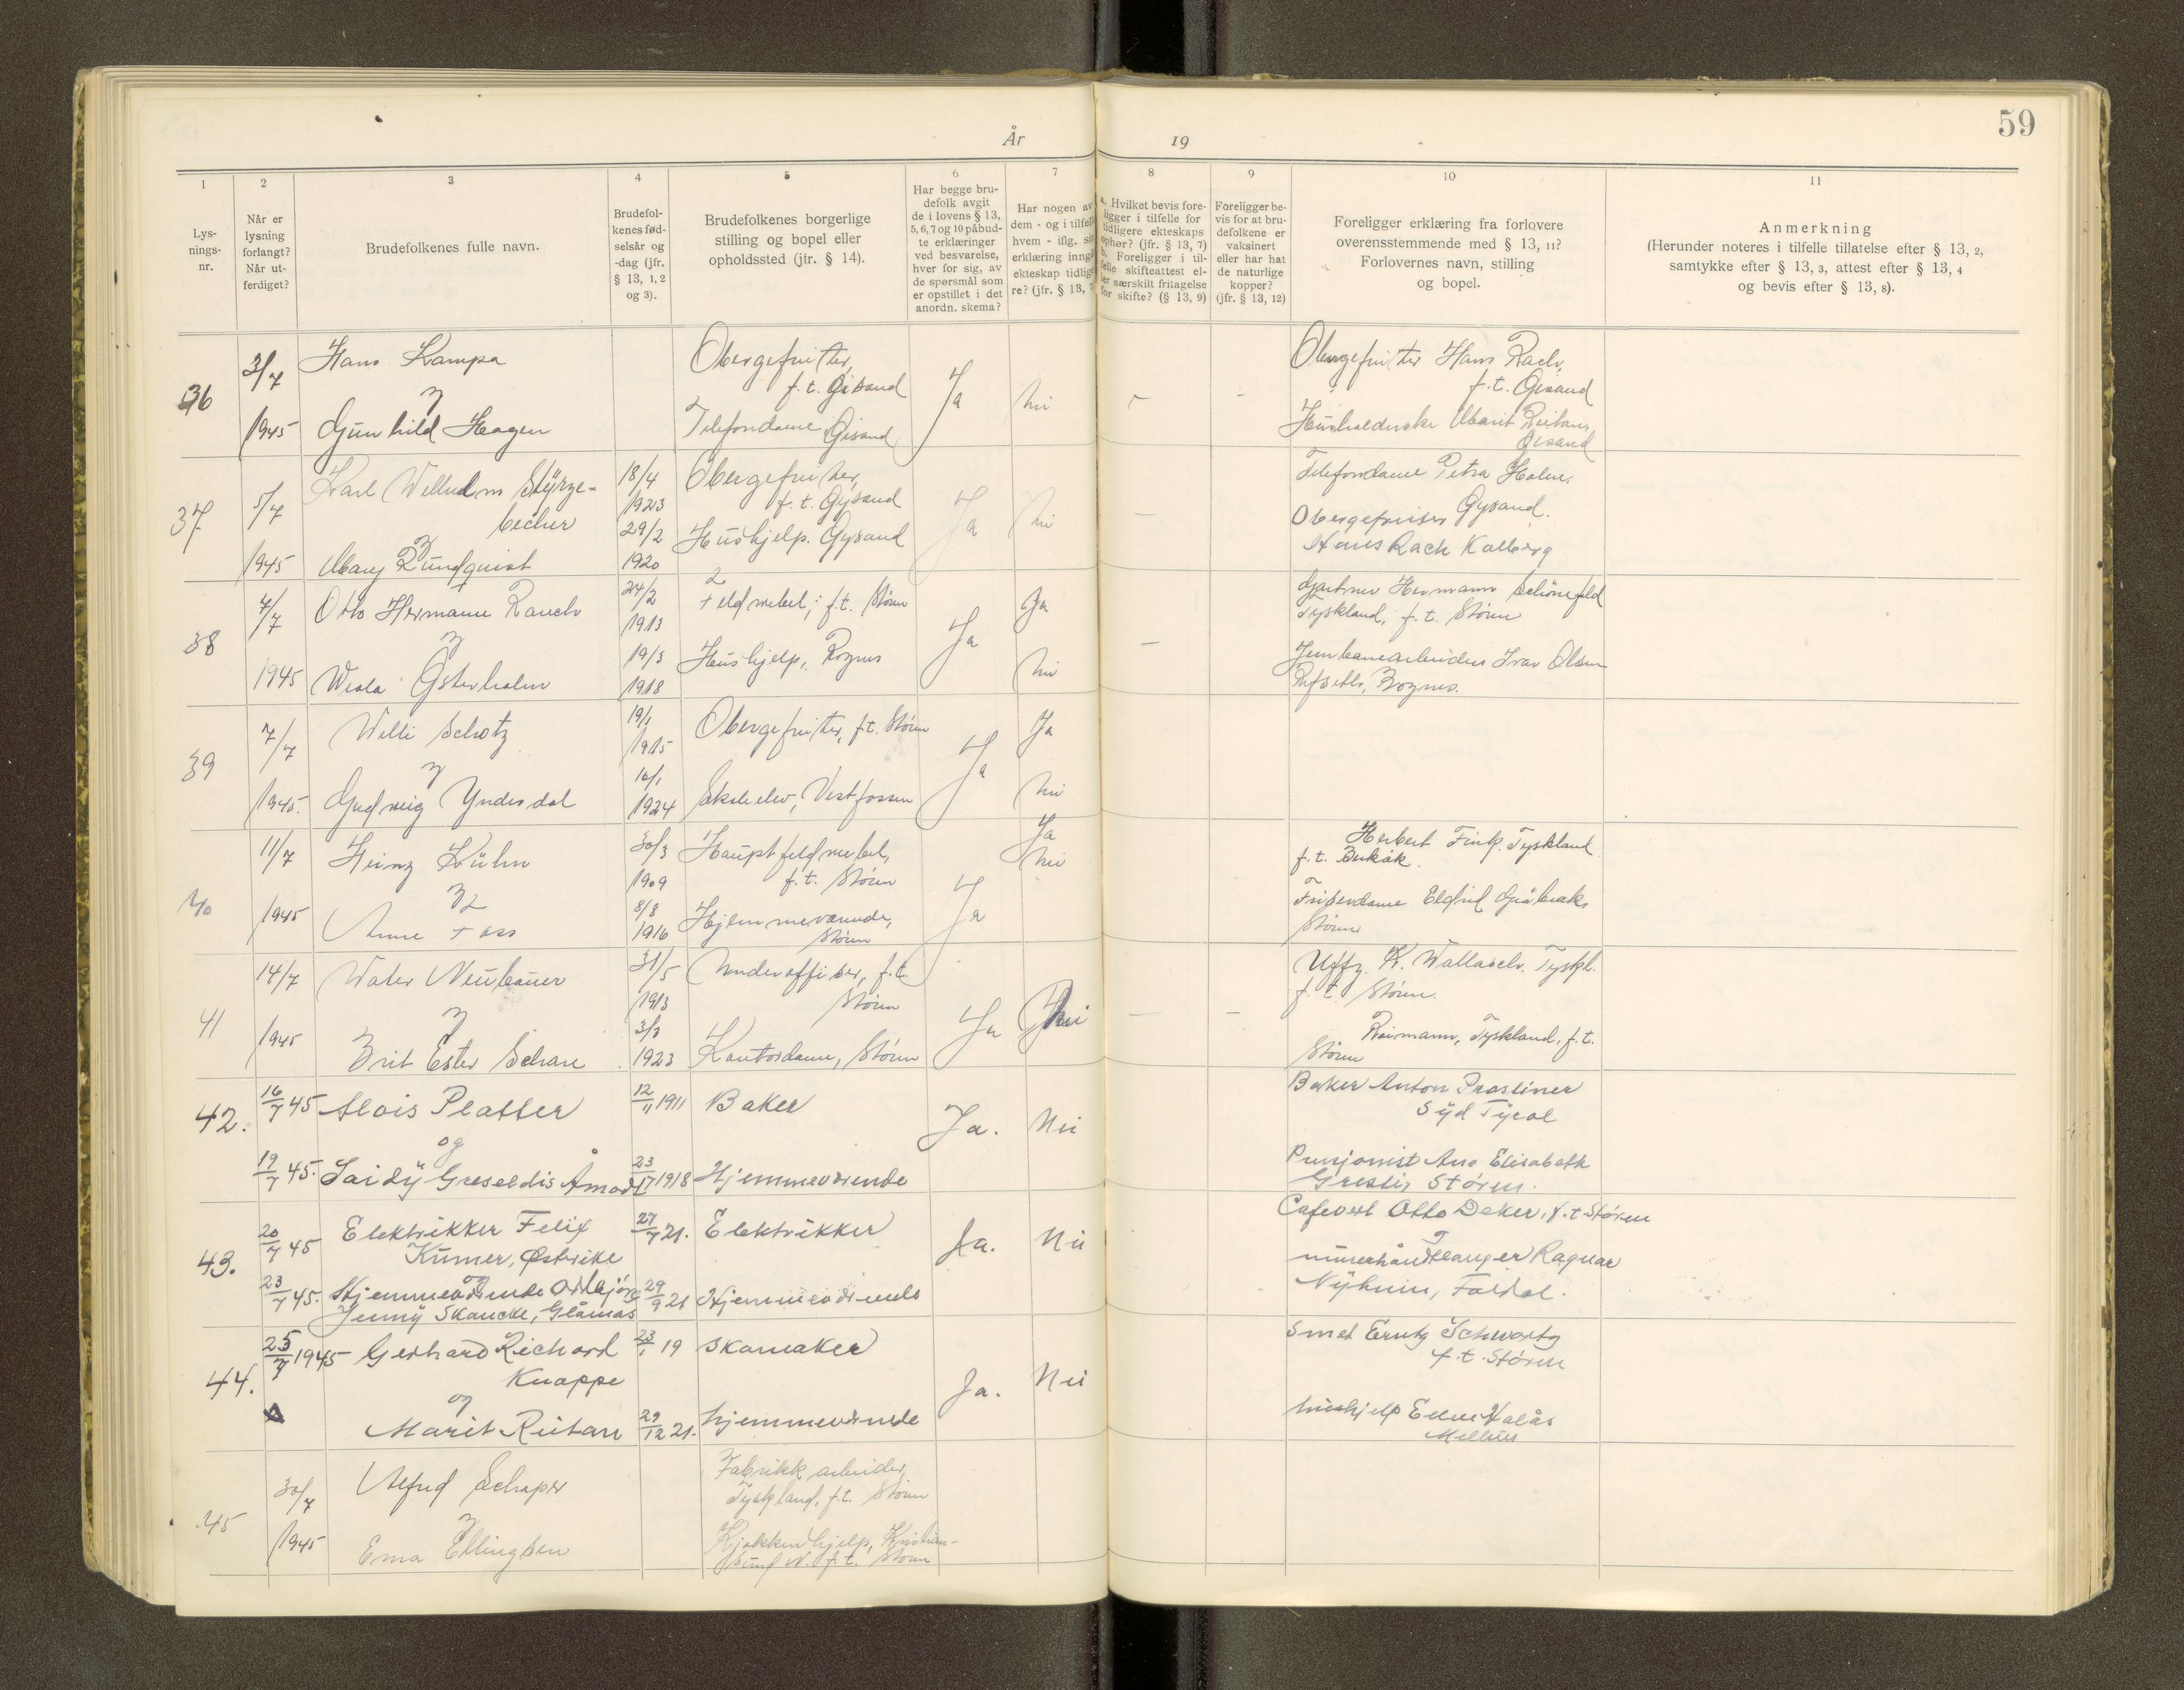 59
År
19
1
2
3
4
5
6
7
8
9
10
11
Lys-
nings-
nr.
Når er
lysning
forlangt?
Når ut-
ferdiget?
Brudefolkenes fulle navn.
Brudefol-
kenes fød-
selsår og
-dag (jfr.
§ 13, 1, 2
og 3).
Brudefolkenes borgerlige
stilling og bopel eller
opholdssted (jfr. § 14).
Har begge bru-
defolk avgit
de i lovens § 13,
5, 6, 7 og 10 påbud-
te erklæringer
ved besvarelse,
hver for sig, av
de spørsmål som
er opstillet i det
anordn. skema?
Har nogen av
dem - og i tilfel
hvem - iflg. 
erklæring inng
ekteskap tidlige
re? (jfr. § 13, 7
a. Hvilket bevis fore-
ligger i tilfelle for
tidligere ekteskaps
ophør? (jfr. § 13, 7)
b. Foreligger i til-
felle skifteattest el-
ler særskilt fritagelse
for skifte? (§ 13, 9)
Foreligger be-
vis for at bru-
defolkene er
vaksinert
eller har hat
de naturlige
kopper?
(jfr. § 13, 12)
Foreligger erklæring fra forlovere
overensstemmende med § 13, 11?
Forlovernes navn, stilling
og bopel.
Anmerkning
(Herunder noteres i tilfelle tillatelse efter § 13, 2,
samtykke efter § 13, 3, attest efter § 13, 4
og bevis efter § 13, 8).
36
3/7
1945
Hans Kampa
og
Gunhild Hagen
Obergefreiter,
f.t. Øisand
Telefondame, Øisand
Ja
Nei
-
-
Obergefreiter Hans Rach,
f.t. Øisand
Husholderske Marit Reitan,
Øisand
37
5/7
1945
Karl Wilhelm Styrze-
becher
og
Mary Rundquist
18/4
1923
29/2
1920
Obergefreiter,
f.t. Øysand
Hushjelp. Øysand
Ja
Nei
-
Telefondame Petra Holm,
Øysand.
Obergefreiter
Hans Rach Kalberg
38
7/7
1945
Otto Hermann Rauch
og
Wiola Østerholm
24/2
1913
19/3
1918
Feldwebel, f.t. Støren
Hushjelp, Rognes
Ja
Ja
Nei
-
Gartner Hermann Schönefeld
Tyskland, f.t. Støren
Jernbanearbeider Ivar Olsen
Refseth, Rognes.
39
7/7
1945.
Willi Schotz
og
Gudveig Yndesdal
19/1
1915
16/1
1924
Obergefreiter, f.t. Støren
elev, Vestfossen
Ja
Ja
Nei
40
11/7
1945
Heinz Kühn
og
Anne Foss
30/3
1909
8/8
1916
Hauptfeldwebel,
f.t. Støren
Hjemmeværende,
Støren
Ja
Ja
Nei
Herbert Fink, Tyskland
f.t. Berkåk.
Frisørdame Eldrid
Støren
41
14/7
1945
Walter Neubauer
og
Brit Ester Schare
31/5
1913
3/3
1923
Underoffiser, f.t.
Støren
Kontordame, Støren
Ja
Nei
-
-
Uffz. K. Wallasch. Tyskl.
f.t. Støren.
Reimann, Tyskland, f.t.
Støren
42.
16/7 45
19/7 45.
Alois Platter
og
Laidy Greseldis Åmodt
12/11 1911
23/7 1918
Baker
Hjemmeværende
Ja.
Nei
Baker Anton Prasliner
Syd Tyrol
Pensjonist Ane Elisabeth
Støren.
43.
20/7 45
23/7 45.
Elektrikker Felix
Kumer, Østrike
og
Hjemmeværende
Jenny Skancke, Glåmos
27/7 21.
29/9 21
Elektrikker
Hjemmeværende
Ja.
Nei
Cafevert Otto Deker, f.t Støren
og
murerhåndtlanger Ragnar
Nyhuun, Foldal.
44.
25/7 1945
Gerhard Richard
Knappe
og
Marit Reitan
23/1 19
29/12 21.
Skomaker
hjemmeværende
Ja.
Nei
Smed Schwartz
f.t. Støren
hushjelp Ellen Halås
Melhus
45
30/7
1945
Alfred Schaper
og
Erna Ellingsen
Fabrikkarbeider,
Tyskland, f.t. Støren
Kjøkkenhjelp, Kristian-
sund N. f.t. Støren